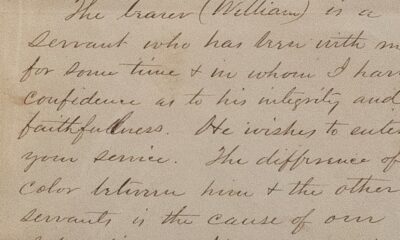 The bearer (William) is a
servant who has been with m
for some time & in whom I hav
confidence as to his integrity and
faithfulness. He wishes to enter
your service. The difference of
color between him & the other
servants is the cause of our